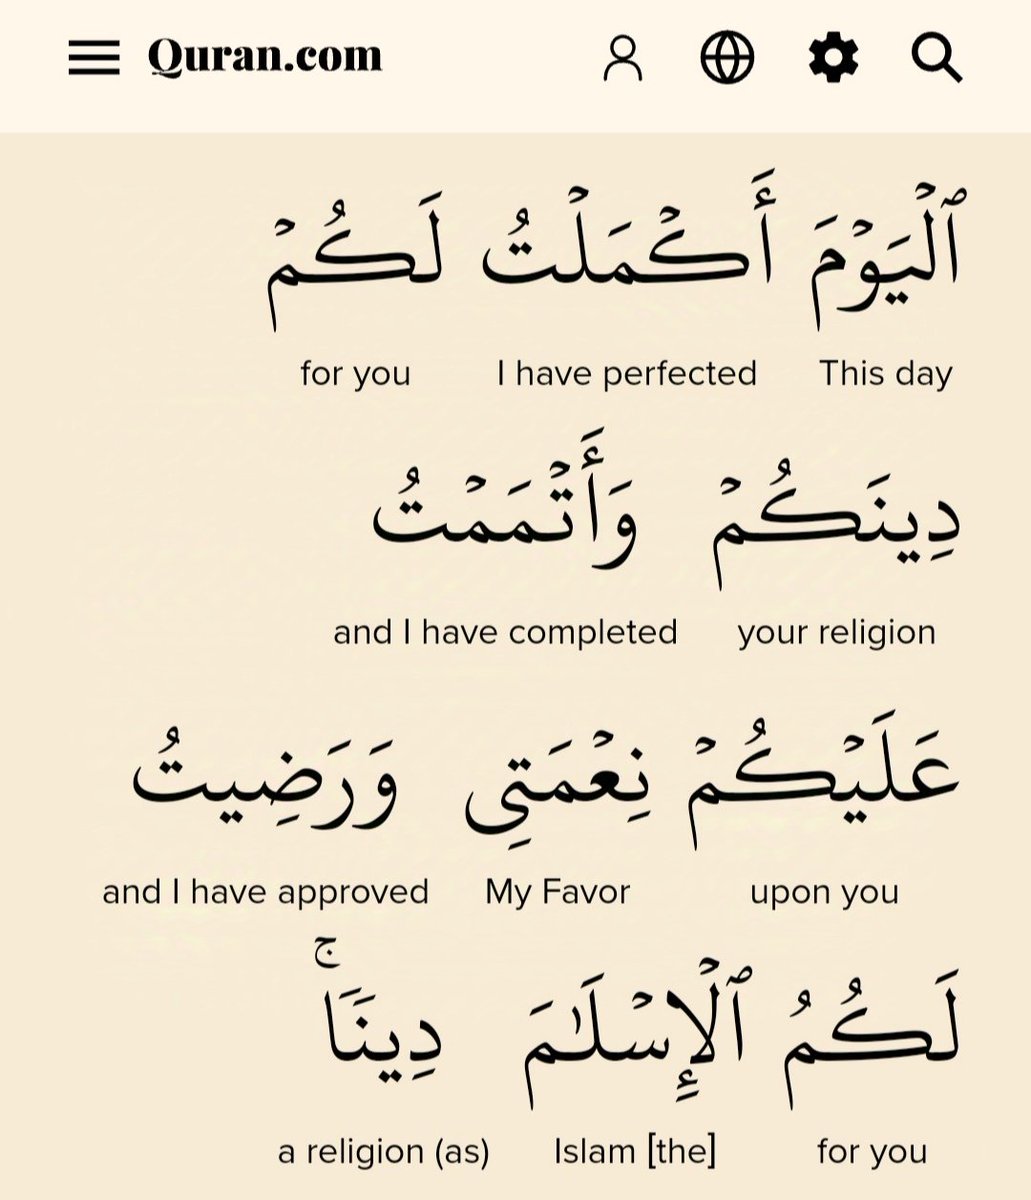 Quran.com
ٱلْيَوْمَ أَكْمَلْتُ لَكُمْ
for you I have perfected This day
دِينَكُمْ وَأَتْمَمْتُ
and I have completed your religion
عَلَيْكُمْ نِعْمَتِى وَرَضِيتُ
and I have approved My Favor upon you
لَكُمُ ٱلْإِسْلَـٰمَ دِينًا ۚ
a religion (as) Islam [the] for you